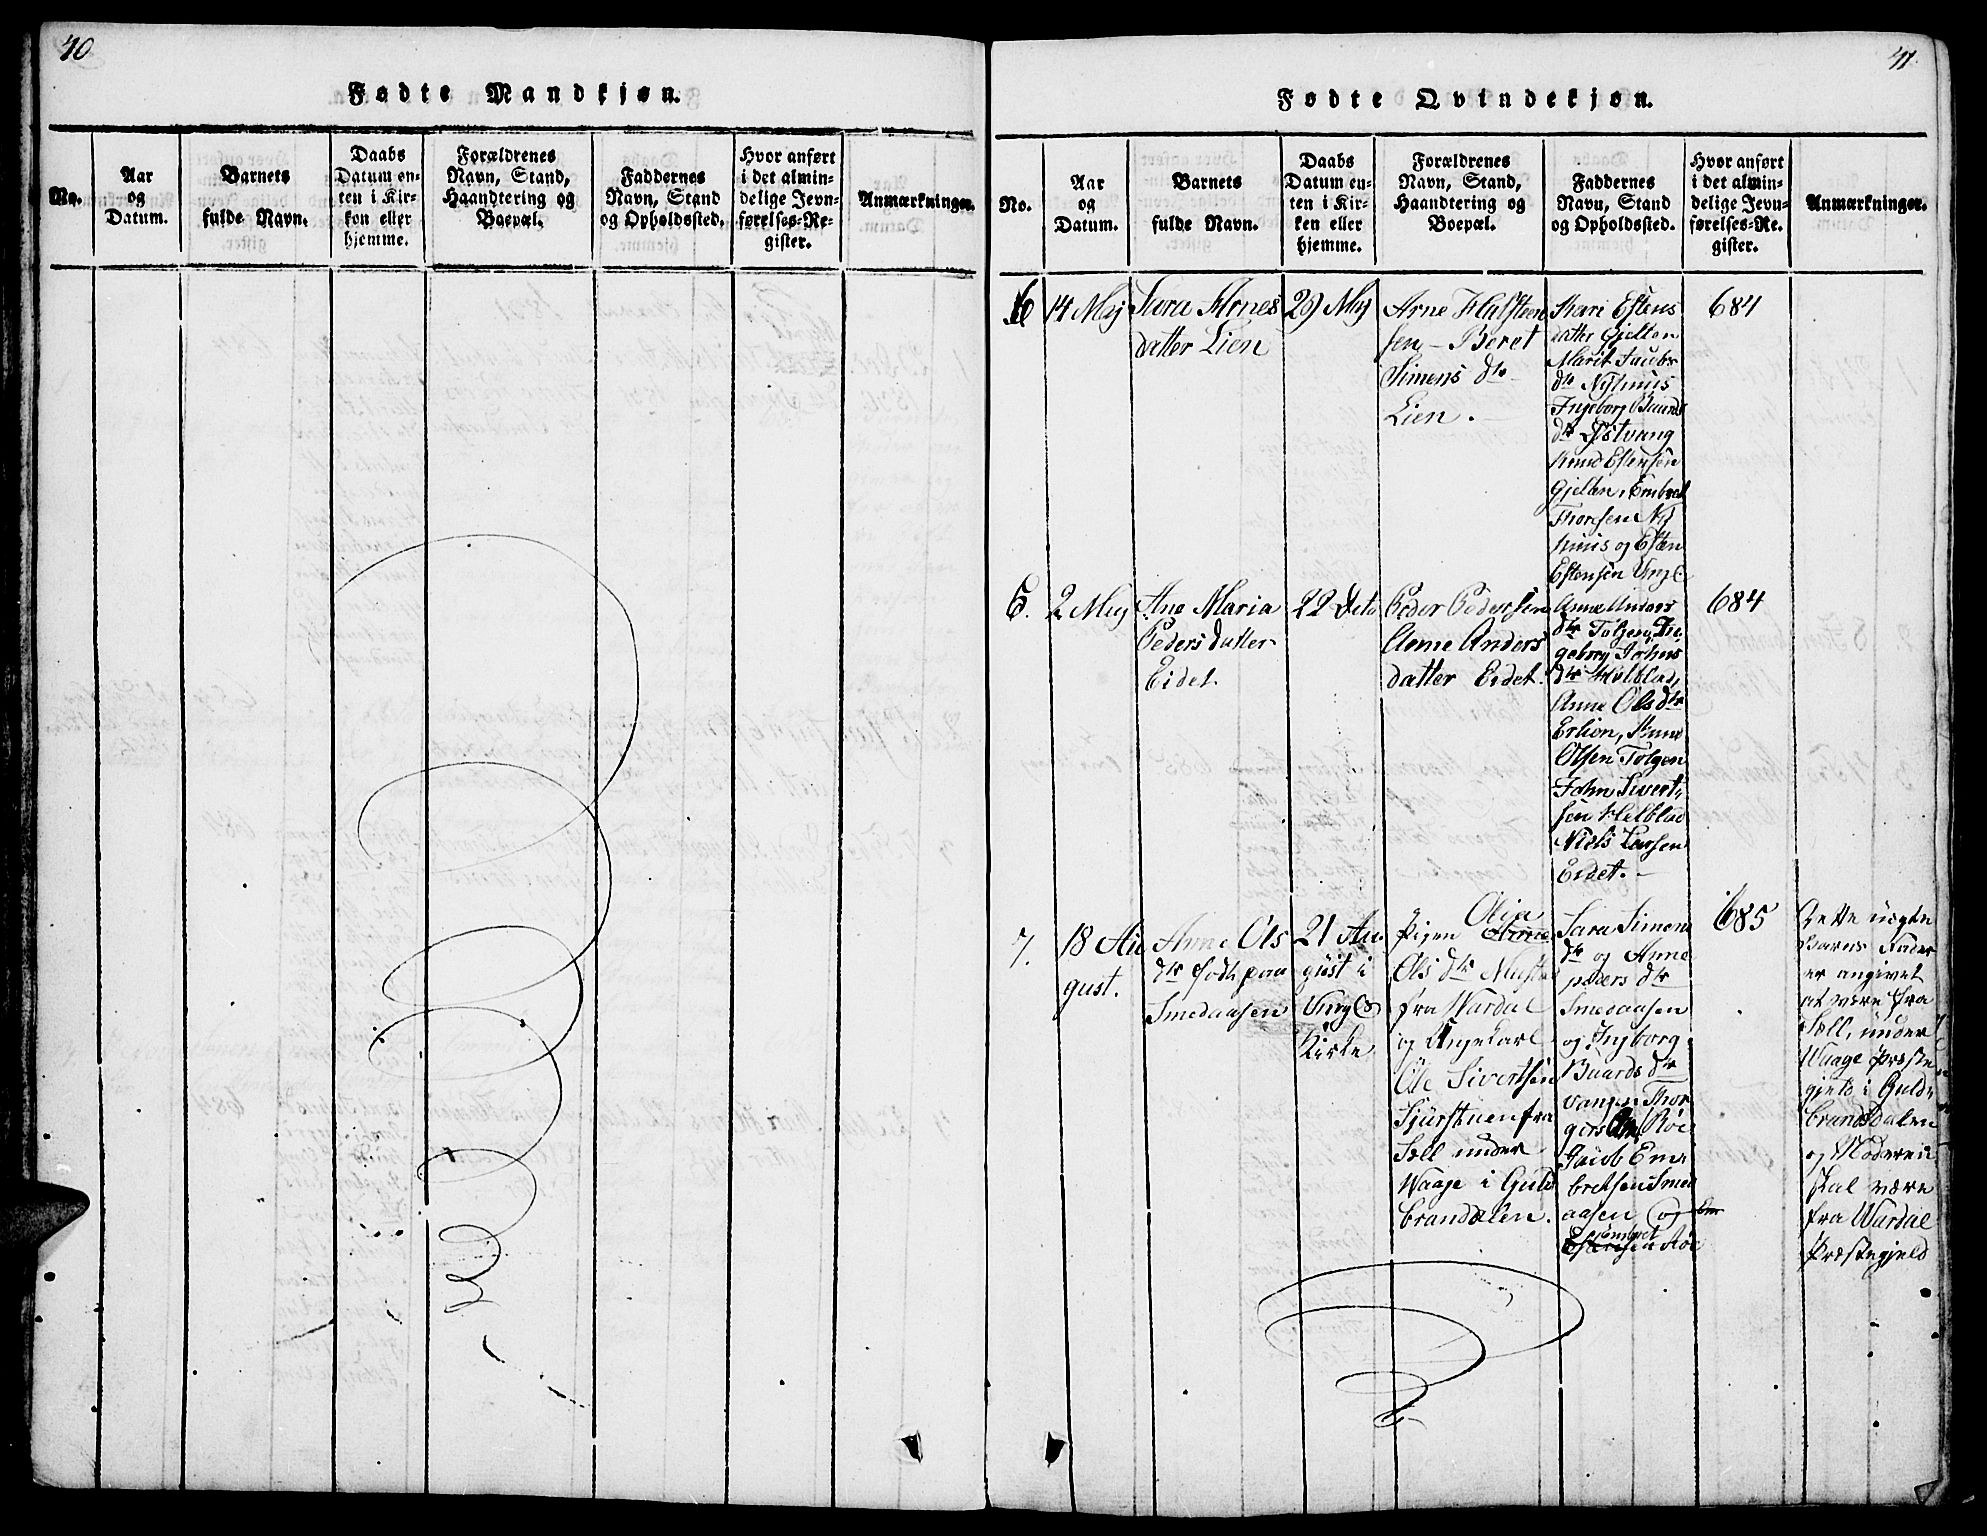 40
Fødte Mandkjøn.
No.
Aar
og
Datum.
Barnets
fulde Navn.
Daabs
Datum en-
ten i Kir-
ken eller
hjemme.
Forældrenes
Navn, Stand,
Haandtering og
Boepæl.
Faddernes
Navn, Stand
og Opholdssted.
Hvor anført
i det almin-
delige Jevn-
førelses-Re-
gister.
Anmærkninger.
41
Fødte Qvindekjøn.
No.
Aar
og
Datum.
Barnets
fulde Navn.
Daabs
Datum en-
ten i Kir-
ken eller
hjemme.
Forældrenes
Navn, Stand,
Haandtering og
Boepæl.
Faddernes
Navn, Stand
og Opholdssted.
Hvor anført
i det almin-
delige Jevn-
førelses-Re-
gister.
Anmærkninger.
6
14 Maj
Sara Arnes
datter Lien
29 Maj
Arne Halsteen
sen, - Beret
Simens dtr
Lien.
Kari Estens
datter Gjelten
Marit Jacobs
dtr Nyhuus
Ingeborg Baards
dtr Østvang
Knud Estensen
Gjelten, Embret
Thoresen Ny
huus og Esten
Estensen
684
5.
2 Maj
Ane Maria
Peders datter
Eidet
22 Dito
Peder Pedersen
Anne Anders
datter Eidet.
Anne Anders
dtr Tolgen, In
geborg Johns
dtr
Anne Ols dtr
Erlien, Knud
Olsen Tolgen
John Sivert
sen
Niels Larsen
Eidet.
684
7.
18 Au
gust.
Anne Ols
dtr født paa
Smedaasen
21 Au
gust i
Kirke
Pigen Olia
Ols dtr
fra Wardal
og Ungekarl
Ole Sivertsen
fra
Sell under
Waage i Guld
brandalen.
Sara Simens
dtr og Anne
peders dtr
Smedaasen
og Ingborg
Baards dtr
vangen Thor
Røe
Jacob Em
bretsen Smed
aasen og Em
Embret
Estensen Røe
685
Dette uægte
Barns Fader
er angivet
at være fra
Sell, under
Waage Præste
gjeld i Guld
brandsdalen
og Moderen
skal være
fra Wardal
Præstegjeld